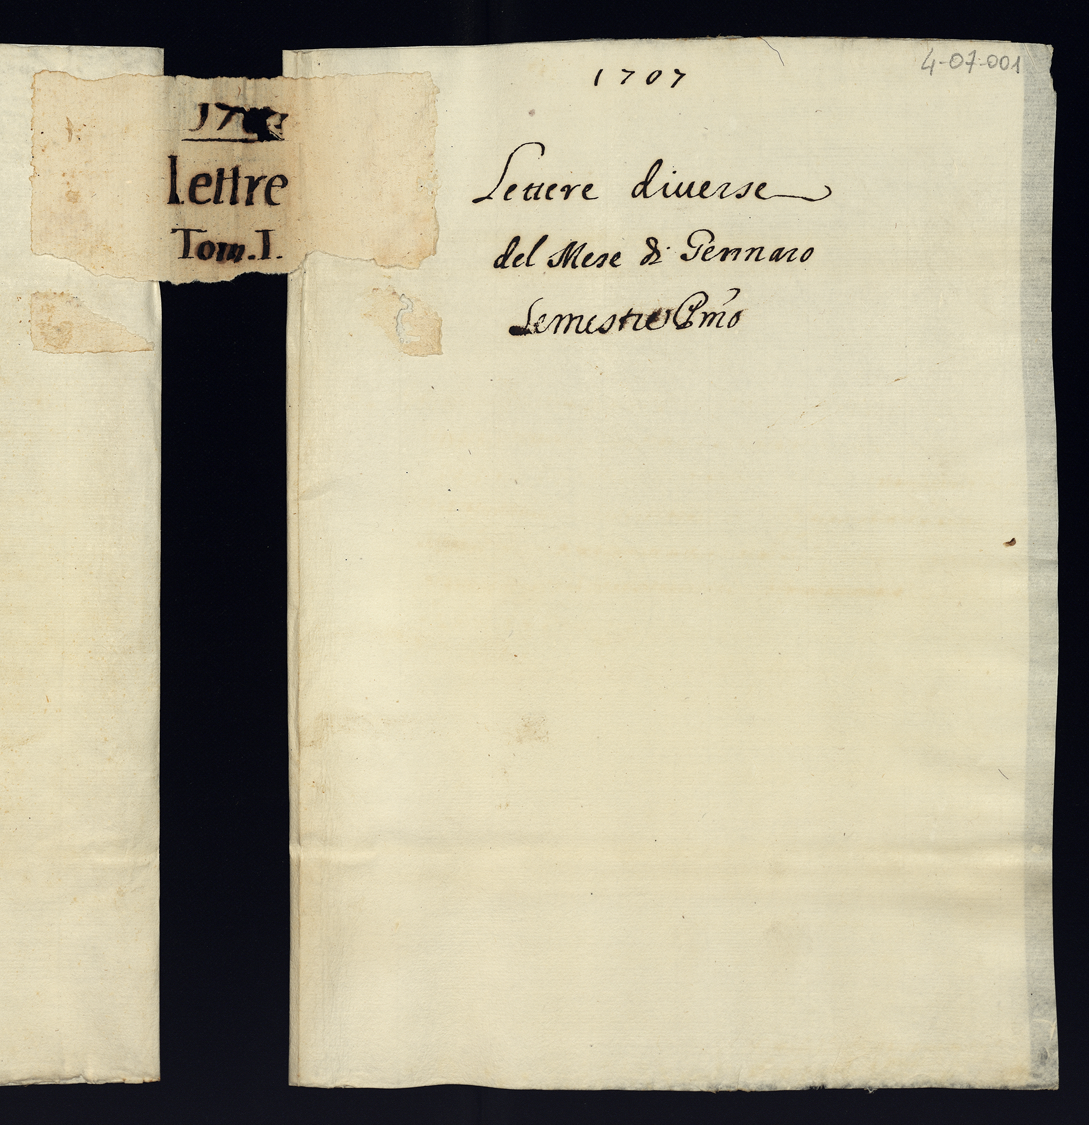 Lettre
Tom. I.
4-07-001
1707
Lettere diuerse
del Mese di Gennaro
Semestre P.mo